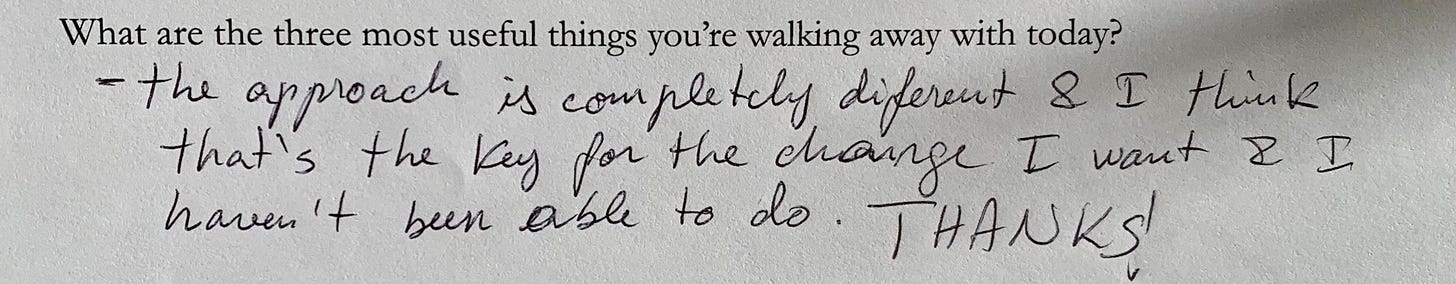 What are the three most useful things you’re walking away with today?
- the approach is completely diferent & I think
that's the key for the change I want & I
haven't been able to do. THANKS!